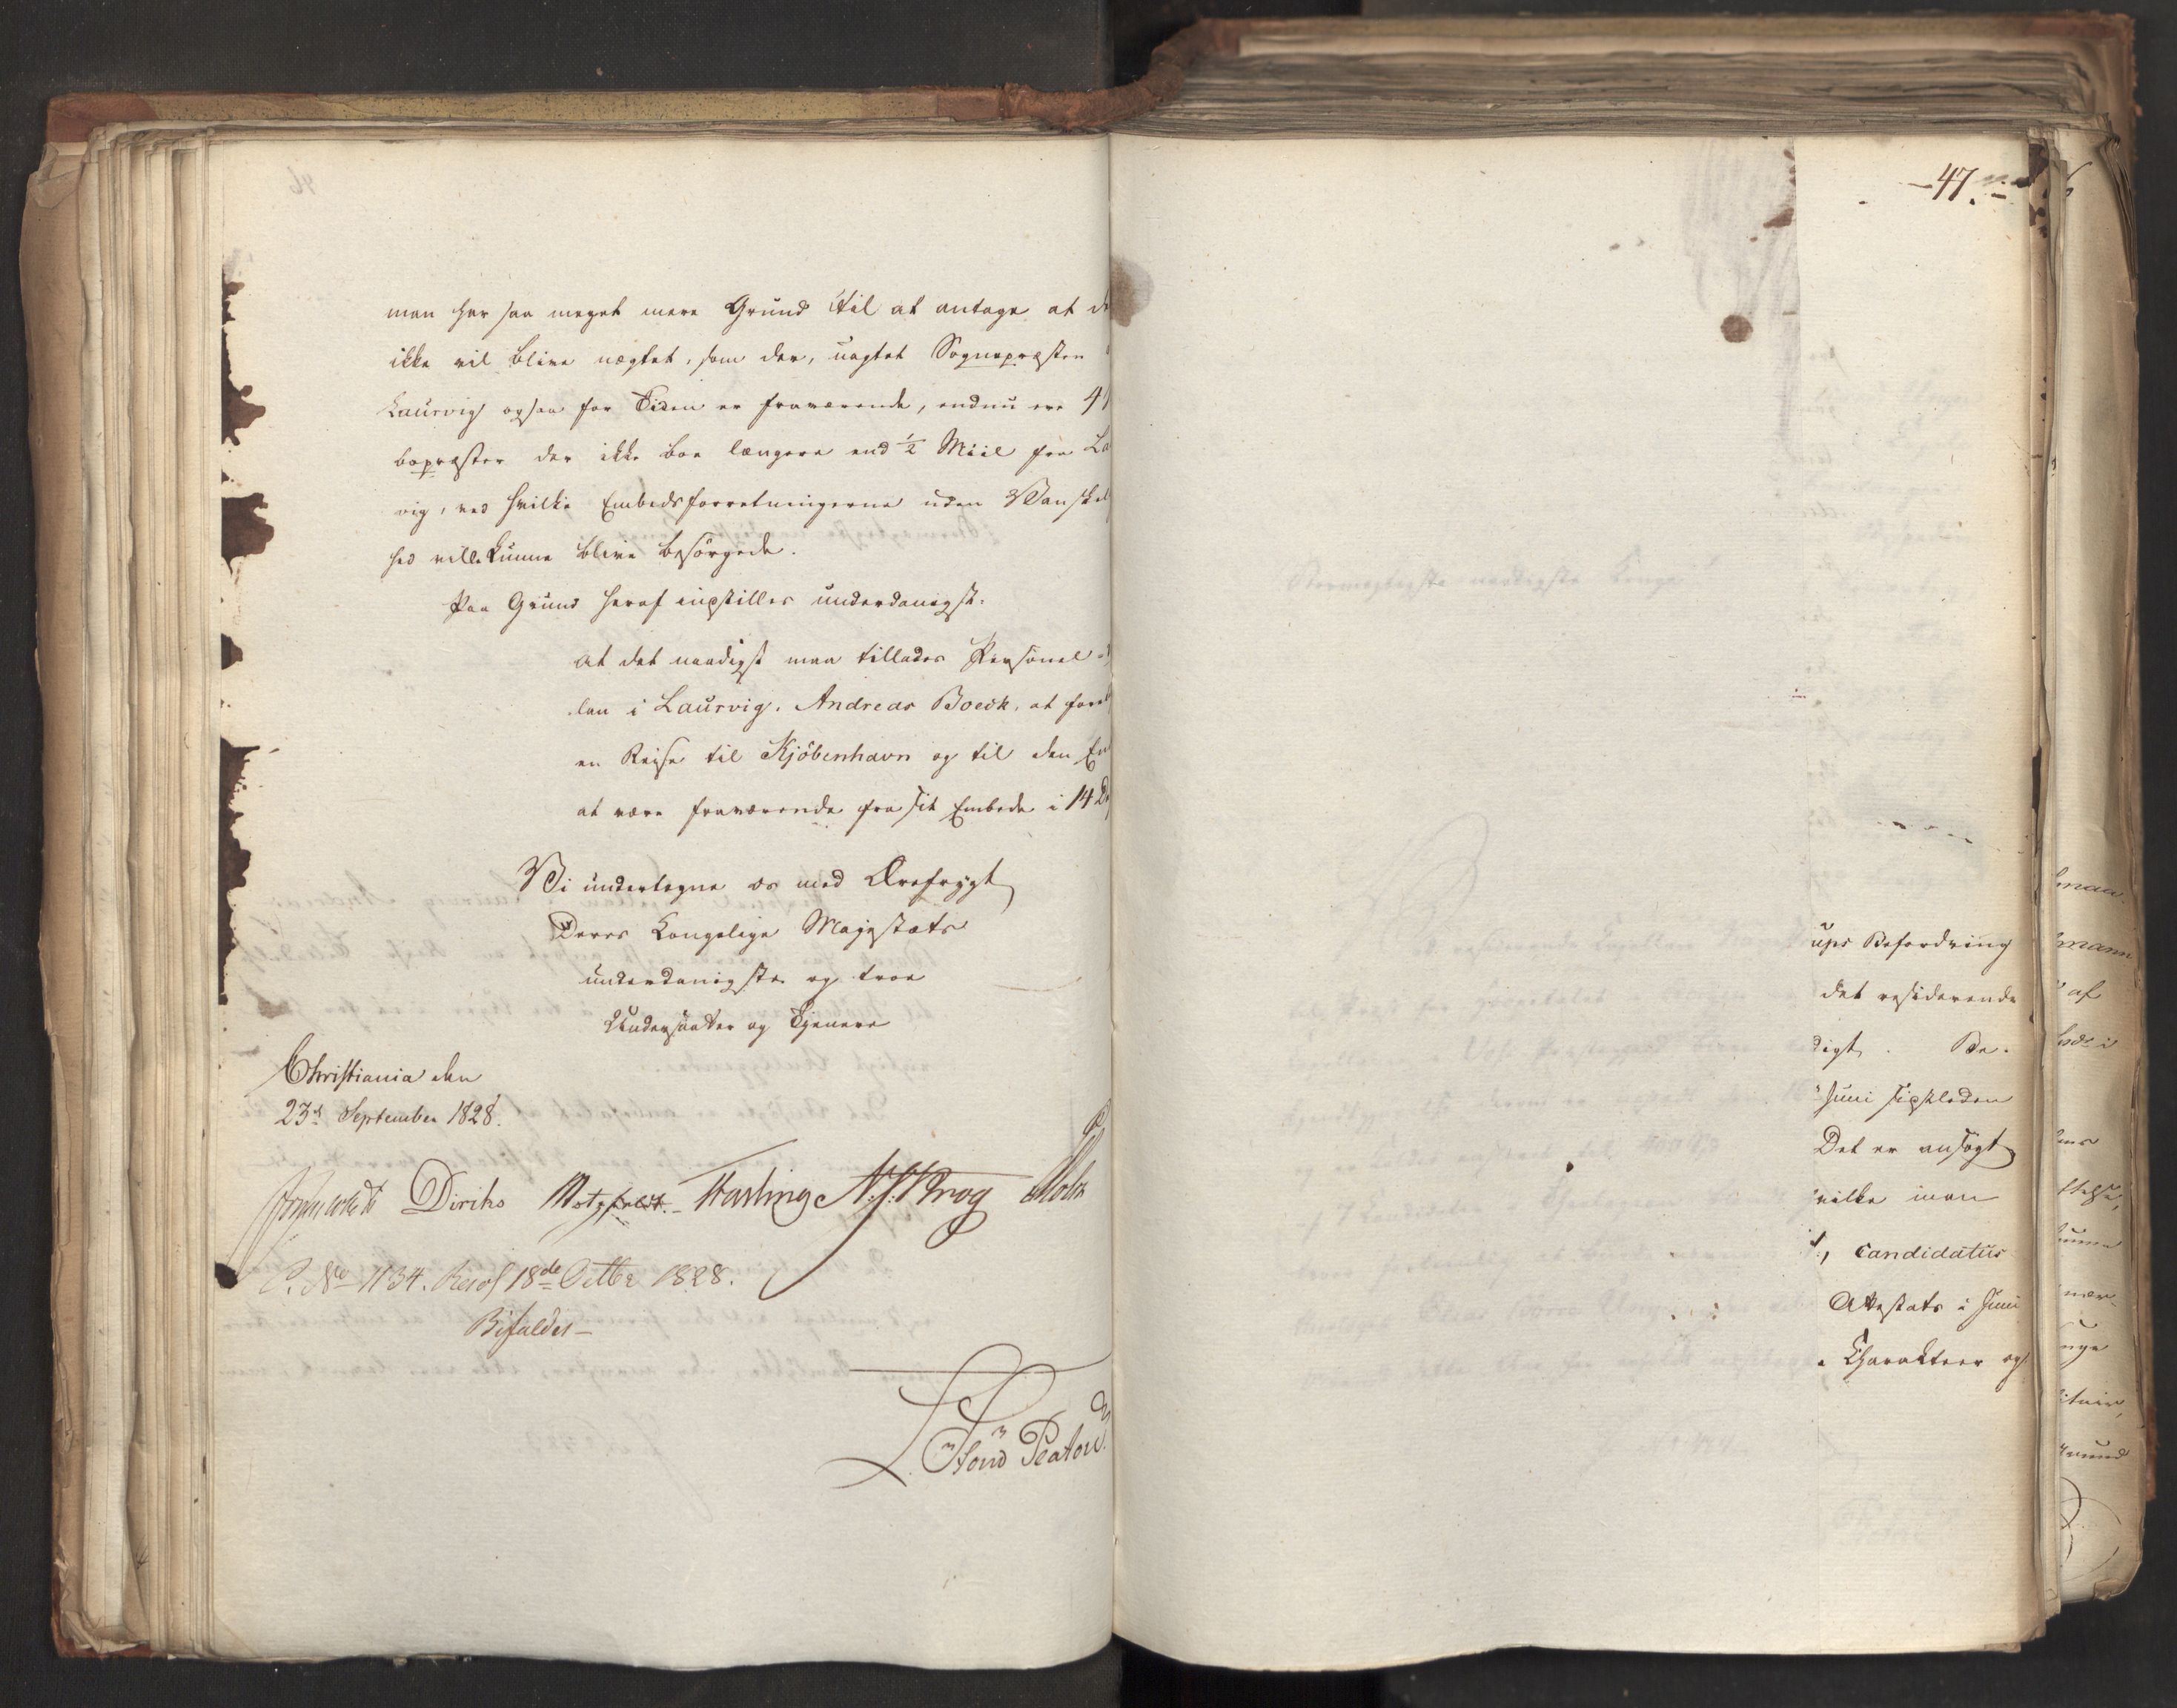 man har saa meget mere Grund til at antage at de
ikke vil blive nægtet, som der, uagtet Sognepræsten
Laurvig ogsaa for Tiden er fraværende, endnu ere
bopræster der ikke boe længere end ½ Miil fra La
vig, ved hvilke Embedsforretningerne uden Vanskel
hed ville kunne blive besörgede.
Paa Grund heraf indstilles underdanigst:
at det naadigst maa tillades Personel
lan i Laurvig, Andreas Boeck, at fore
en Reise til Kjöbenhavn og til den En
at være fraværende fra sit Embede i 14 Da
Vi undertegne os med Ærefrygt
Deres Kongelige Majestæts
underdanigste og troe
Undersaatter og Tjenere
Christiania den
23d September 1828.
Diriks Motzfeldt. Krog Holst
C. No 1134. Resol 18de Octbr 1828.
Bifaldes
47.
ups Befordring
det residerende
digt. Be-
Juni sidstleden
Det er ansögt
hvilke man
Candidatus
Attestats i Juni
Charakteer og
man
mann
af